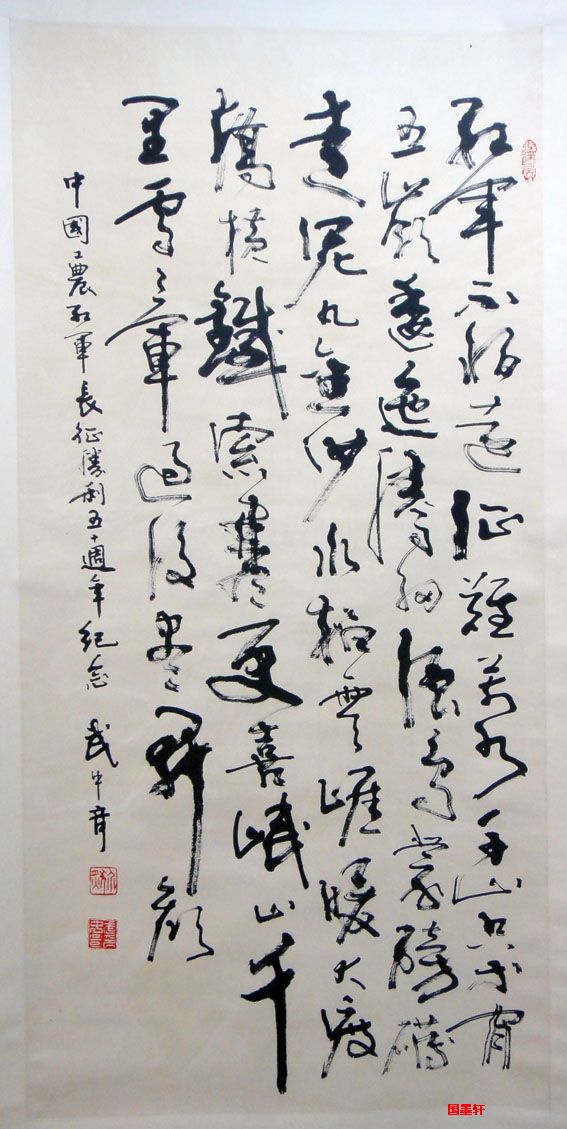 紅軍不怕遠征難萬水千山只等閑
五嶺逶迤騰細浪烏蒙磅礴
走泥丸金沙水拍雲崖暖大渡
橋橫鐵索寒更喜岷山千
里雪三軍過後盡開顏
中國工農紅軍長征勝利五十週年紀念 武中奇
国墨轩